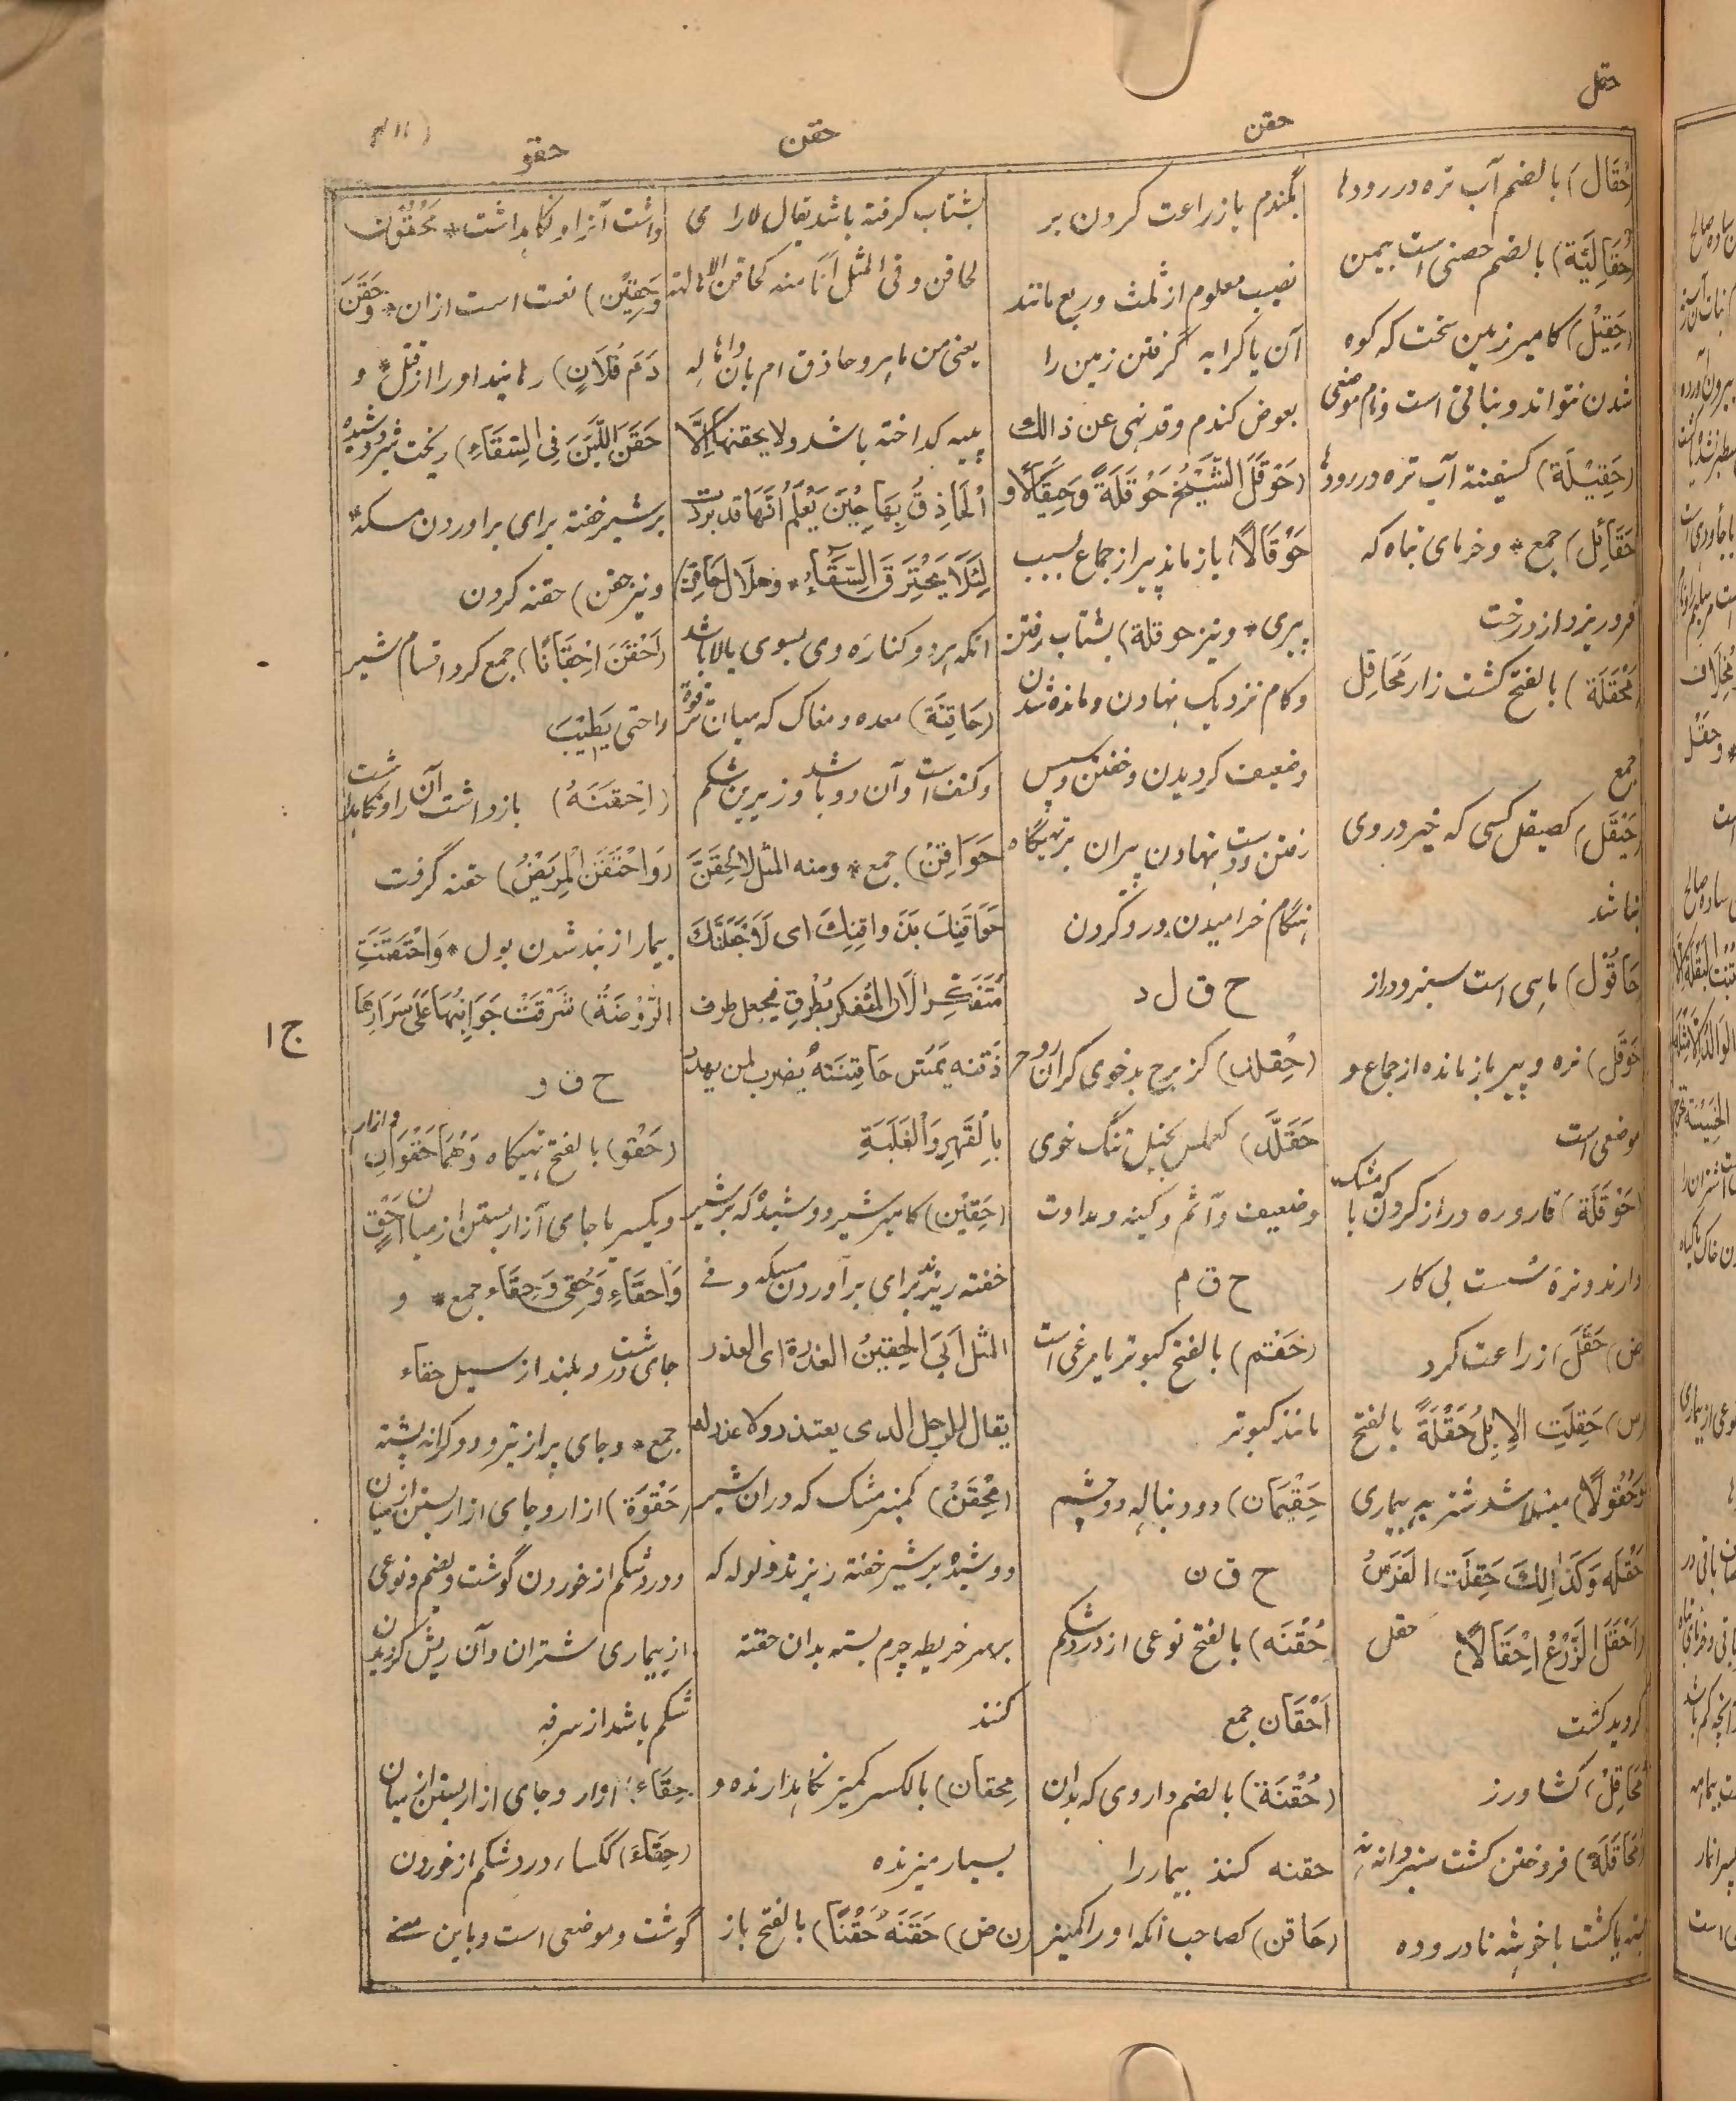 حقل
حقن
حقن
حقو
(حُقَال) بالضم آب تره در رودها
(حُقَالِیَّة) بالضم حصنی است بیمن
(حَقِیْل) کامیر زمین سخت که کوه
شدن نتواند و نباتی است و نام موضعی
(حَقِیْلَة) کسفینة آب تره در رودها
حَقَائِل) جمع * و خرمای تباه که
فرو ریزد از درخت
(مَحْقَلَة) بالفتح کشت زار مَحَاقِل
جمع
(حَیْقَل) کصیقل کسی که خیر در وی
نباشد
(حَاقُوْل) ماهی است سبز و دراز
(حَوْقَل) نره و پیر باز مانده از جماع و
موضعی است
(حَوْقَلَة) قاروره دراز کردن با که مشک
دارند و نرهٔ سست بی کار
(ض) حَقَلَ) زراعت کرد
(س) حَقِلَتِ الاِبِلُ حَقْلَةً بالفتح
وَحُقُوْلًا) مبتلا شد شتر به بیماری
حَقْلَه وَکَذٰالِکَ حَقِلَت الفَرَسُ
(اَحْقَلَ الزَّرْعُ اِحْقَالًا) حقل
گردید کشت
(مُحَاقِل) کشاورز
(مُحَاقَلَة) فروختن کشت سبز دانه نه
بسته یا کشت با خوشه نا دروده
بگندم یا زراعت کردن بر
نصیب معلوم از ثلث و ربع مانند
آن یا کرایه گرفتن زمین را
بعوض گندم و قد نهی عن ذالك
(حَوْقَلَ الشَّیْخُ حَوْقَلَةً وَحِیْقَالًا و
حَوْقَالًا) باز ماند پیر از جماع بسبب
پیری * و نیز حوقلة) بشتاب رفتن
و گام نزدیک نهادن و مانده شدن
و ضعیف گردیدن و خفتن و پس
رفتن و دست نهادن پیران بر تهیگاه
هنگام خرامیدن و رو گردن
ح ق ل د
(حِقْلِد) کزبرج بدخوی گران روح
حَقَلَّد) کعملس بخیل تنگ خوی
و ضعیف و آثم و کینه و عداوت
ح ق م
(حَقْم) بالفتح کبوتر یا مرغی است
مانند کبوتر
حَقِیْمَان) دو دنباله دو چشم
ح ق ن
حُقْنَه) بالفتح نوعی از درد شکم
اَحْقَان جمع
(حُقْنَة) بالضم داروی که بدان
حقنه کنند بیمار را
(حَاقن) کصاحب آنکه او را کمیز
بشتاب گرفته باشد یقال لا رای
لحاقن و فی المثل اَنَا منه کحاقن الاهالة
یعنی من ماهر و حاذق ام بان و اهاله
پیه گداخته باشد و لا یحقنها اِلَّا
اَلْحَاذِقُ بِهَا حِیْنَ یَعْلَمُ اَنَّهَا قد بردت
لِئَلَّا یَحْتَرِقَ السِّقَاءُ * و هلال حَاقِن)
آنکه هر دو کناره وی بسوی بالا باشد
(حَاقِنَة) معده و مغاک که میان ترقوة
و کتف است و آن دو باشد و زیرین شکم
حَوَاقِنُ) جمع * ومنه المثل لاُلحِقَنَّ
حَوَاقِنَكَ بِذَواقِنِكَ ای لَاَجْعَلَنَّكَ
مُتَفَکِّرا لاَن المُتَفکر یُطْرِق فیجعل طرف
ذَقنه یَمَسّ حَاقِنَتَهُ یضرب لمن یهدد
بِالْقَهرِ وَالْغَلَبَةِ
(حَقِیْن) کامیر شیر دوشیده که بر شیر
خفته ریزند برای برآوردن مسکه و فی
المثل اَبَی الحَقِیْنُ العِذْرَة ای العذر
یقال للرجل الذی یعتذر ولا عذر له
(مِحْقَنُ) کمنبر مشک که در ان شیر
دوشیده بر شیر خفته ریزند و لوله که
بر سر خریطه چرم بسته بدان حقنه
کنند
مِحقان) بالکسر کمیز نگاهدارنده و
بسیار میزنده
(ن ض) حَقَنَهُ حَقْنًا) بالفتح باز
داشت آنرا و نگاهداشت * مَحْقُوْن
وَحَقِیْن) نعت است از ان * وَحَقَنَ
دَمَ فُلَانٍ) رهانید او را از قتل * و
حَقَنَ اللَّبَنَ فِی السِّقَاءِ) ریخت شیر دوشیده
بر شیر خفته برای برآوردن مسکه *
و نیز حقن) حقنه کردن
(اَحْقَنَ اِحْقَانًا) جمع کرد اقسام شیر
را حتی یَطِیْبَ
(اِحْقَنَهُ) باز داشت آن را و نگاهداشت
(وَاحْتَقَنَ الْمَرِیْضُ) حقنه گرفت
بیمار از بند شدن بول * وَاحْتَقَنَتِ
الرَّوْضَةُ) شَرَفَتْ جَوَانِبُهَا عَلَی سَرَارِهَا
ح ق و
(حَقْو) بالفتح تهیگاه وَهُمَا حَقْوَانِ و ازار
و یکسر یا جای ازار بستن از میان اَحْقٍ
وَاَحقَاء وَحُقِی وَحِقَاء جمع * و
جای درشت و بلند از سیل حقاء
جمع * و جای پر از تیر و دو کرانه پشته
(حَقْوَة) ازار و جای ازار بستن از میان
و درد شکم از خوردن گوشت و بضم و نوعی
از بیماری شتران و آن ریش گردیدن
شکم باشد از سرفه
حِقَاء: ازار و جای ازار بستن از میان
(حِقَاء) ککساء درد شکم از خوردن
گوشت و موضعی است و باین معنی
ج ١